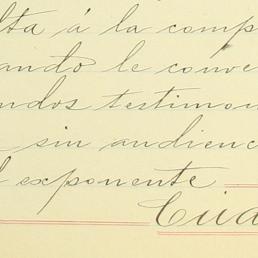 lta á la comp
ando le conve
ndos testimon
sin audienc
l exponente
Cuar